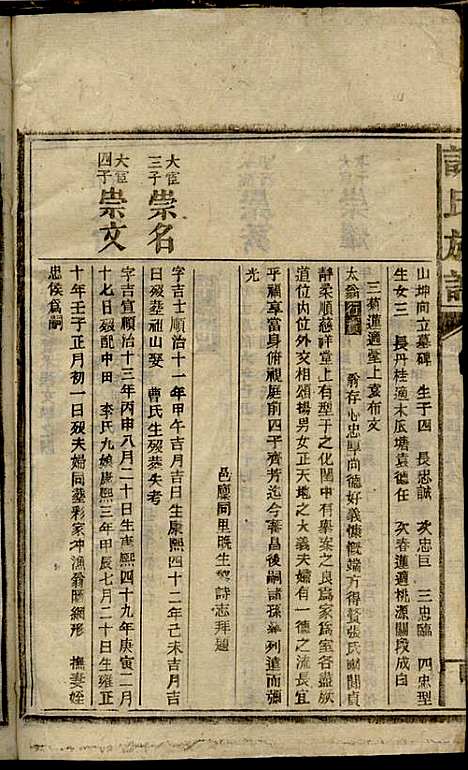 山坤向立墓碑 生子四 長忠誠 次忠巨 三忠臨 四忠型
生女三 長丹桂適木瓜塘袁德任 次春蓮適桃源關段成白
三菊蓮適臺上袁布文
太翁行 翁存心忠厚尚德好義慷慨端方得賢張氏幽閒貞
靜柔順慈祥堂上有型于之化閨中有舉案之良爲家爲室各盡厥
道位內位外交相頌揚男女正天地之大義夫婦有一德之流長宜
乎福享當身俯視庭前四子齊芳迄今蕃昌後嗣諸孫舉列遠而彌
光
邑廩同里晚生黎詩志拜題
大宦三子 崇名 字吉士順治十一年甲午吉月吉日生康熙四十二年己未吉月吉
日歿葬祖山娶 曹氏生歿葬失考
大宦四子 崇文 字吉宣順治十三年丙申八月二十日生康熙四十九年庚寅二月
十七日歿配中田 李氏九娘康熙三年甲辰七月二十日生雍正
十年壬子正月初一日歿夫婦同葬彩家冲漁翁晒網形 撫妻姪
忠侯爲嗣
氏族譜